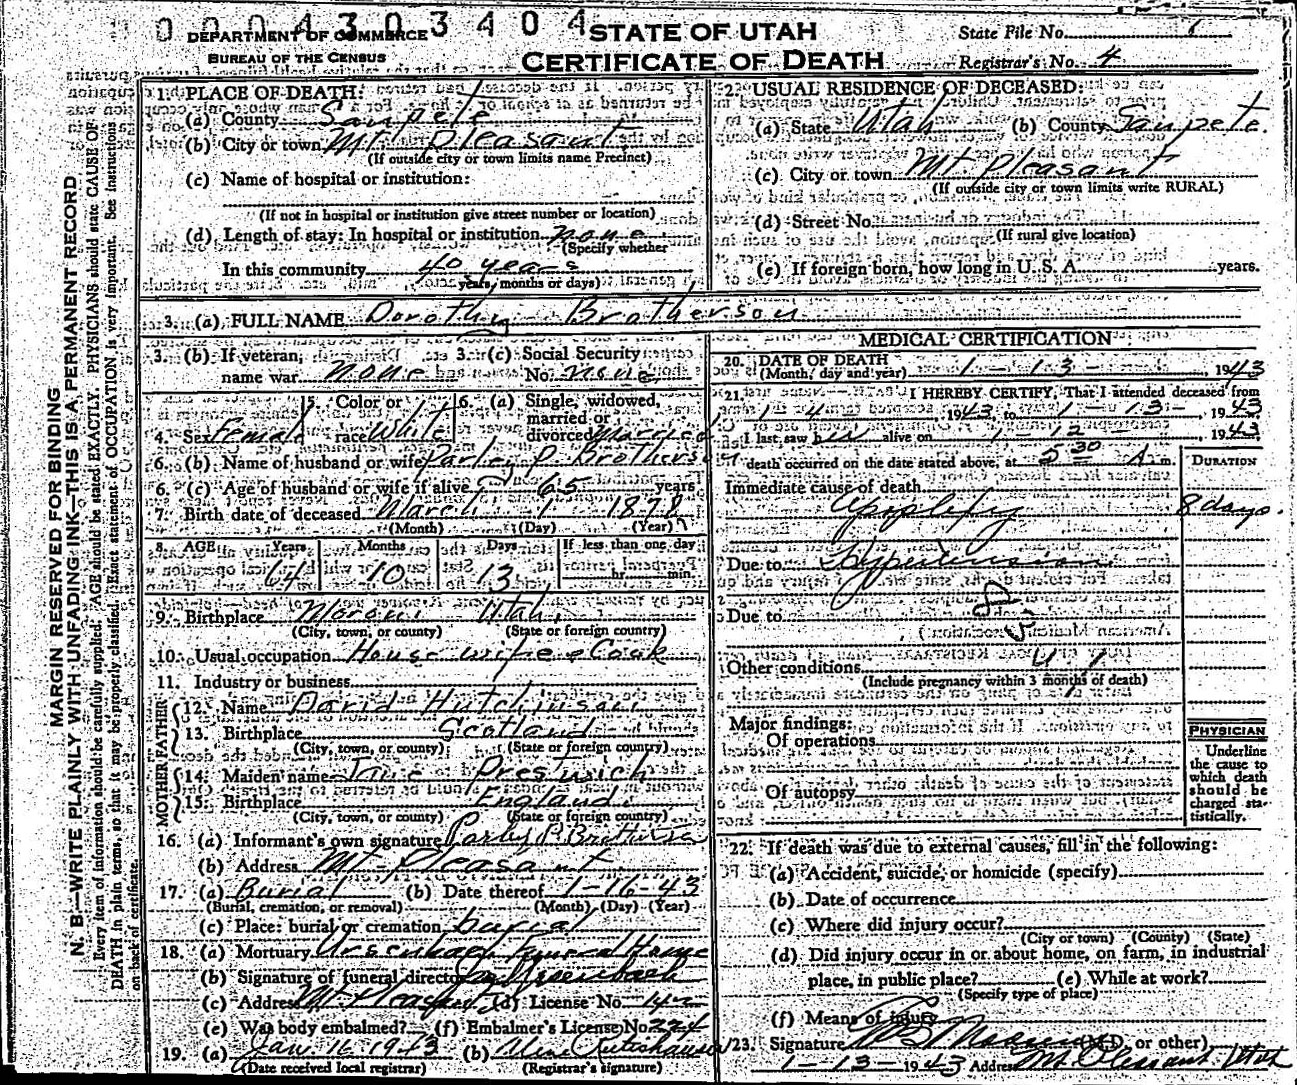 0004303404
DEPARTMENT OF COMMERCE
BUREAU OF THE CENSUS
STATE OF UTAH
CERTIFICATE OF DEATH
State File No.
Registrar's No. 4
MARGIN RESERVED FOR BINDING
N. B.—WRITE PLAINLY WITH UNFADING INK—THIS IS A PERMANENT RECORD
Every item of information should be carefully supplied. AGE should be stated EXACTLY. PHYSICIANS should state CAUSE OF
DEATH in plain terms, so that it may be properly classified. Exact statement of OCCUPATION is very important. See instructions
on back of certificate.
1. PLACE OF DEATH:
(a) County Sanpete
(b) City or town Mt. Pleasant
(If outside city or town limits name Precinct)
(c) Name of hospital or institution:
(If not in hospital or institution give street number or location)
(d) Length of stay: In hospital or institution none
(Specify whether
In this community 40 years
years, months or days)
2. USUAL RESIDENCE OF DECEASED:
(a) State Utah (b) County Sanpete.
(c) City or town Mt. Pleasant
(If outside city or town limits write RURAL)
(d) Street No.
(If rural give location)
(e) If foreign born, how long in U. S. A. years.
3. (a) FULL NAME Dorothy Brotherson
3. (b) If veteran, name war none 3. (c) Social Security No. none
4. Sex Female 5. Color or race White 6. (a) Single, widowed, married or divorced Married
6. (b) Name of husband or wife Parley P. Brotherson
6. (c) Age of husband or wife if alive 65 years
7. Birth date of deceased March 1 1878
(Month) (Day) (Year)
8. AGE Years Months Days If less than one day
64 10 13 hr. min.
9. Birthplace Moroni Utah
(City, town, or county) (State or foreign country)
10. Usual occupation House wife & Cook
11. Industry or business
FATHER
12. Name David Hutchinson
13. Birthplace Scotland
(City, town, or county) (State or foreign country)
MOTHER
14. Maiden name Jane Prestwich
15. Birthplace England
(City, town, or county) (State or foreign country)
16. (a) Informant's own signature Parley P. Brotherson
(b) Address Mt Pleasant
17. (a) Burial (b) Date thereof 1-16-43
(Burial, cremation, or removal) (Month) (Day) (Year)
(c) Place: burial or cremation burial
18. (a) Mortuary Ursenbach Funeral Home
(b) Signature of funeral director Ursenbach
(c) Address Mt. Pleasant (d) License No. 142
(e) Was body embalmed? (f) Embalmer's License No. 224
19. (a) Jan 16 1943 (b)
(Date received local registrar) (Registrar's signature)
MEDICAL CERTIFICATION
20. DATE OF DEATH
(Month, day and year) 1 - 13 - , 1943
21. I HEREBY CERTIFY, That I attended deceased from
1-4 1943, to 1-13-, 1943
I last saw her alive on 1-12-, 1943
death occurred on the date stated above, at 5 30 A m.
DURATION
Immediate cause of death
Apoplexy 8 days.
Due to Hypertension
Due to
Other conditions
(Include pregnancy within 3 months of death)
Major findings:
Of operations
Of autopsy
PHYSICIAN
Underline
the cause to
which death
should be
charged sta-
tistically.
22. If death was due to external causes, fill in the following:
(a) Accident, suicide, or homicide (specify)
(b) Date of occurrence
(c) Where did injury occur?
(City or town) (County) (State)
(d) Did injury occur in or about home, on farm, in industrial
place, in public place? (e) While at work?
(Specify type of place)
(f) Means of injury
23. Signature (M.D. or other)
1-13-1943 Address Mt. Pleasant Utah